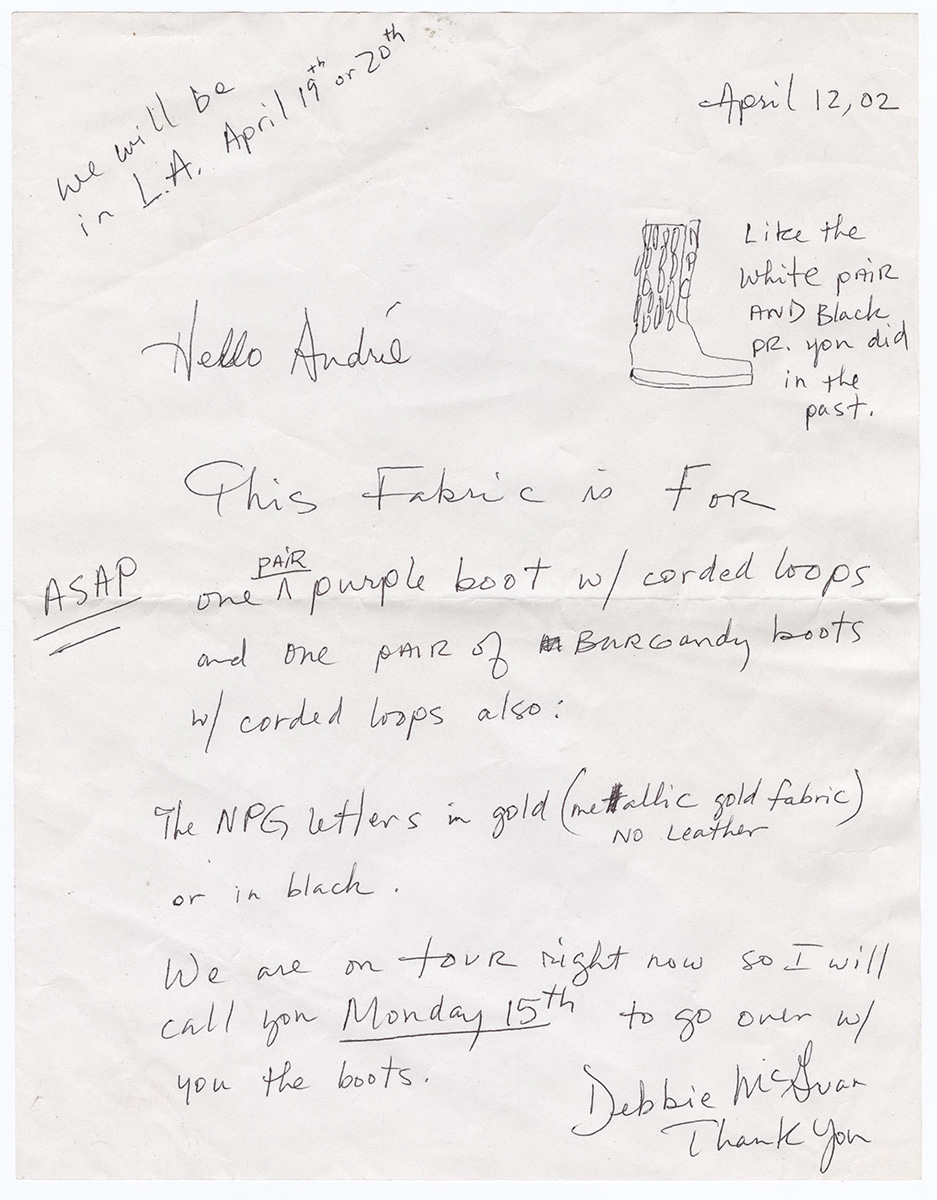 we will be
in L.A. April 19th or 20th
April 12, 02
N
P
G
Like the
white pAiR
AND Black
PR. you did
in the
past.
Hello André
This Fabric is FoR
ASAP
PAiR
one ^ purple boot w/ corded loops
and one pAiR of BuRGandy boots
w/ corded loops also:
The NPG letters in gold (metallic gold fabric)
NO Leather
or in black.
We are on touR right now so I will
call you Monday 15th to go over w/
you the boots.
Debbie McGuan
Thank You